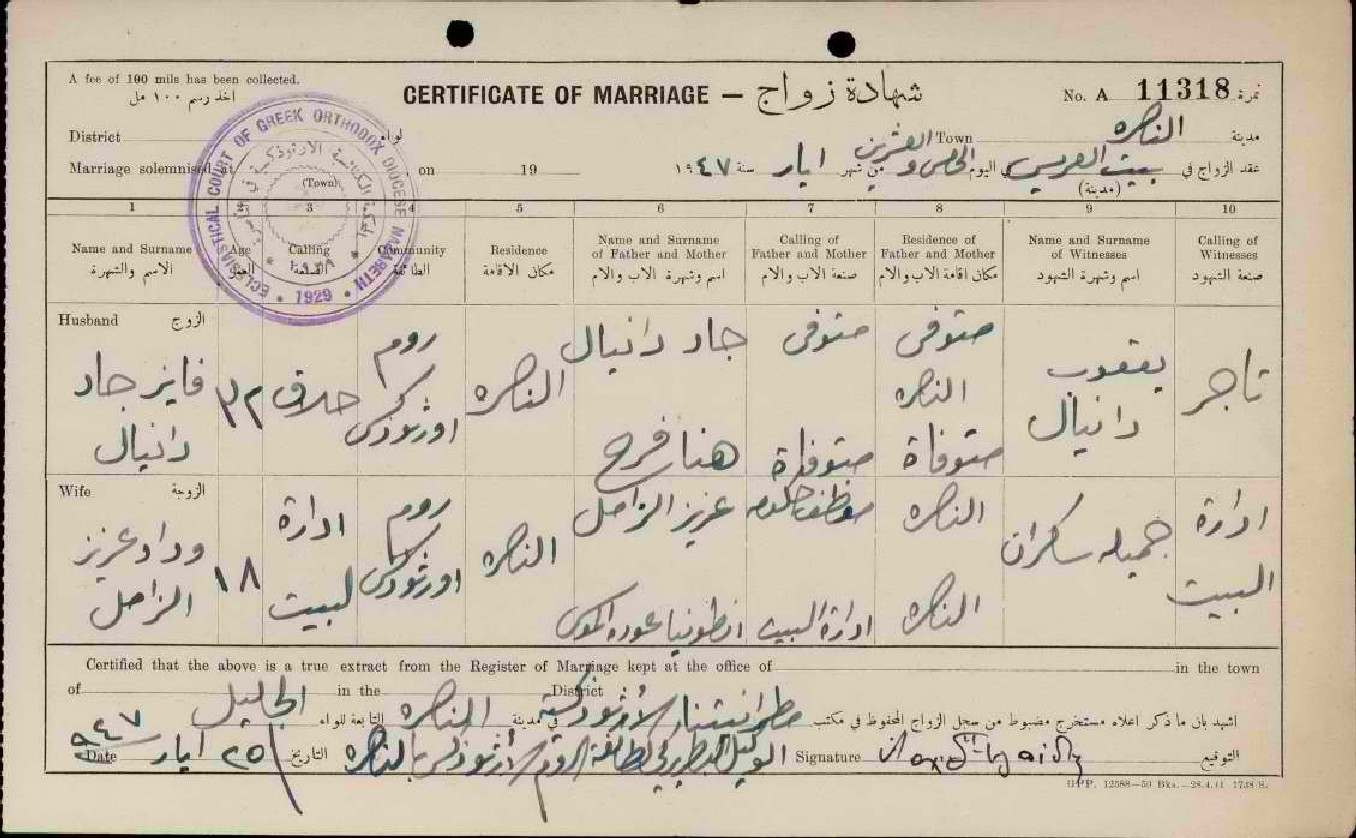 A fee of 100 mils has been collected.
اخذ رسم ١٠٠ مل
CERTIFICATE OF MARRIAGE — شهادة زواج
No. A 11318 نمرة
District لواء Town الناصره مدينة
Marriage solemnised at (Town) on 19
عقد الزواج في بيت العريس (مدينة) في اليوم الخامس والعشرين من شهر ايار سنة ١٩٤٧
ECLESIASTICAL COURT OF GREEK ORTHODOX DIOCESE NAZARETH
1929
1 3 4 5 6 7 8 9 10
Name and Surname
الاسم والشهرة
Age
Calling
الصنعة
Community
الطائفة
Residence
مكان الاقامة
Name and Surname
of Father and Mother
اسم وشهرة الاب والام
Calling of
Father and Mother
صنعة الاب والام
Residence of
Father and Mother
مكان اقامة الاب والام
Name and Surname
of Witnesses
اسم وشهرة الشهود
Calling of
Witnesses
صنعة الشهود
Husband الزوج
فايز جاد
دانيال
٣٢
حلاق
روم
اورثوذكس
الناصره
جاد دانيال
هنا فرح
متوفى
متوفاة
متوفى
الناصره
متوفاة
يعقوب
دانيال
تاجر
Wife الزوجة
وداد عزيز
الزامل
١٨
ادارة
لبيت
روم
اورثوذكس
الناصره
عزيز الزامل
انطونيا عوده
ادارة البيت
الناصره
الناصره
جميله سكران
ادارة
البيت
Certified that the above is a true extract from the Register of Marriage kept at the office of in the town
of in the District
اشهد بان ما ذكر اعلاه مستخرج مضبوط من سجل الزواج المحفوظ في مكتب مطرانيتنا الارثوذكسية في مدينة الناصره التابعة للواء الجليل
Date ٩٤٧ ايار ٢٥ التاريخ
الوكيل البطريركي لطائفة الروم الارثوذكس بالناصره
Signature التوقيع
GPP. 12588—50 Bks.—28.4.41 1738/S.